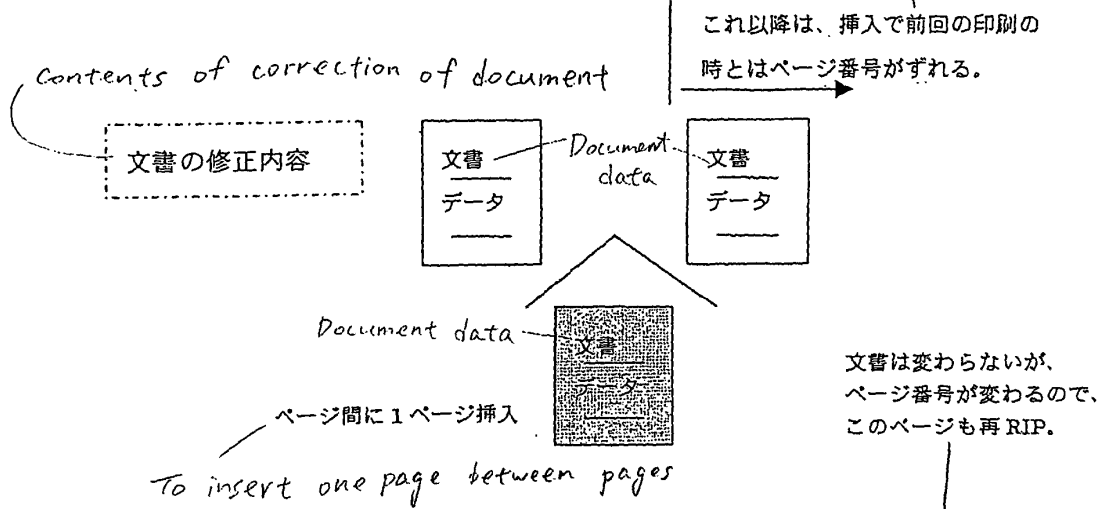 これ以降は、挿入で前回の印刷の
時とはページ番号がずれる。
Contents of correction of document
文書の修正内容
文書
データ
Document
data
文書
データ
Document data
文書
データ
ページ間に1ページ挿入
To insert one page between pages
文書は変わらないが、
ページ番号が変わるので、
このページも再RIP。